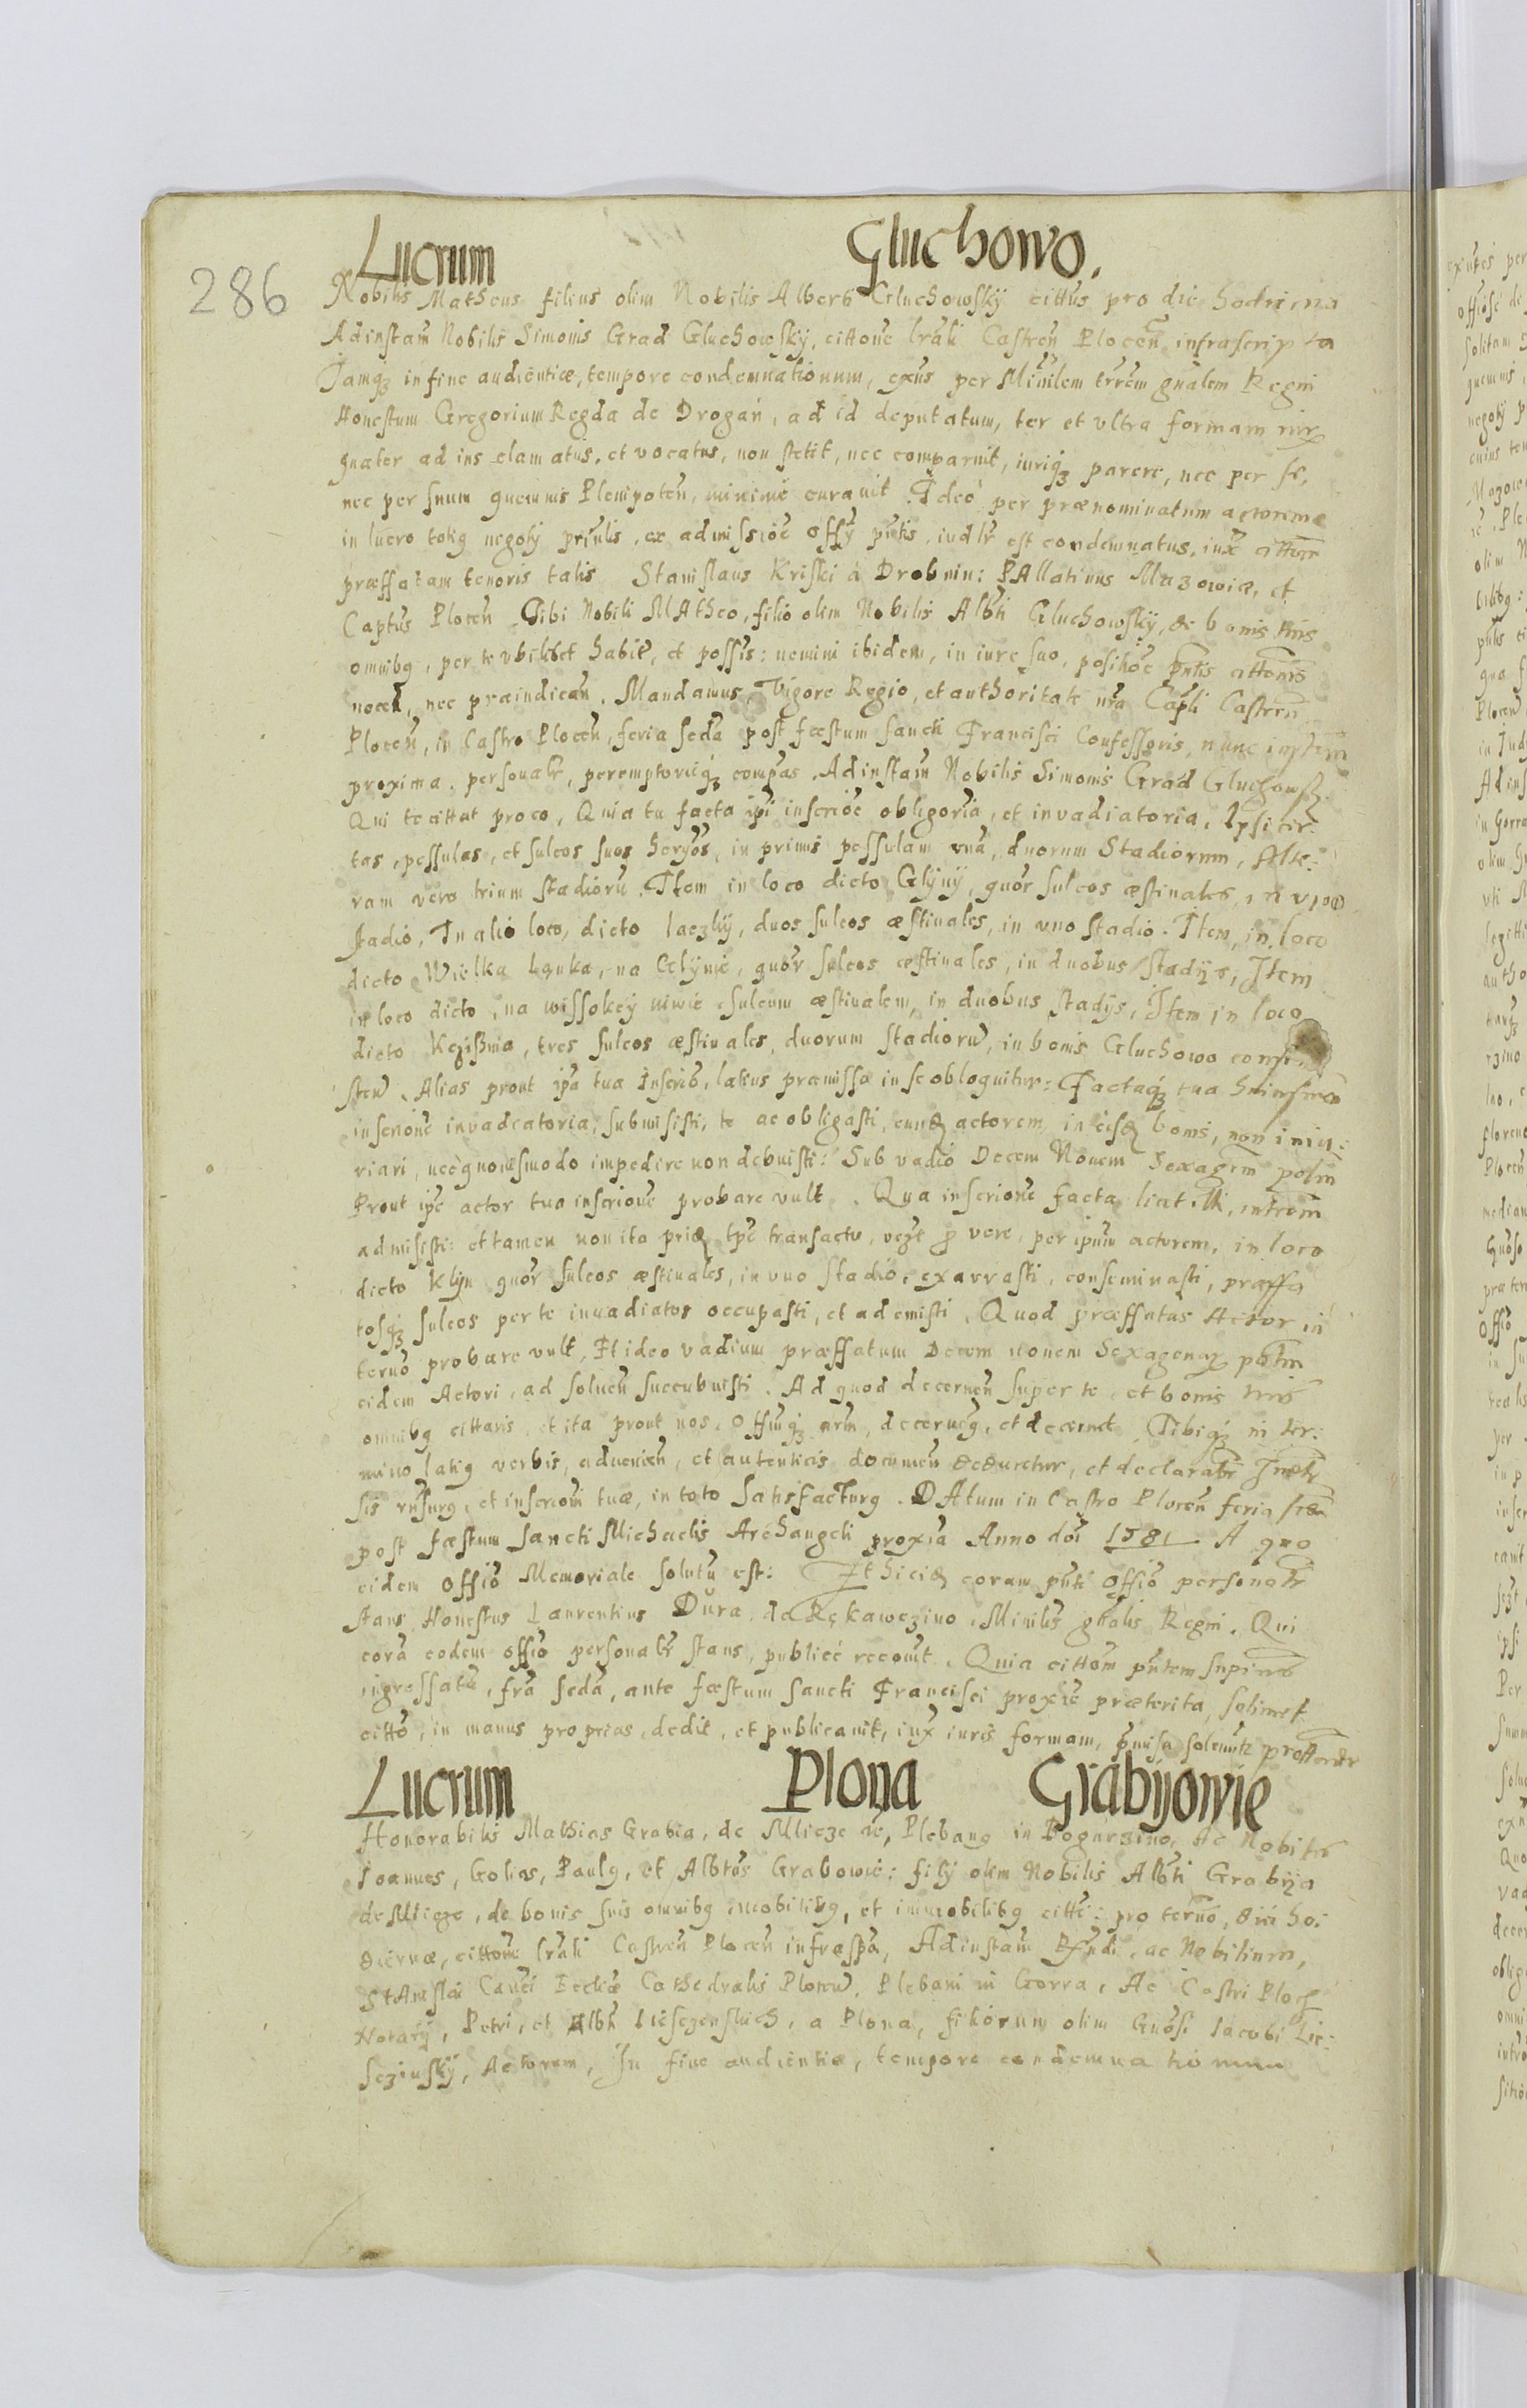 286
Lucrum Gluchowo.
Nobilis Matheus filius olim Nobilis Alberti Gluchowskÿ cittus pro die hodierna
Ad instam Nobilis Simonis Grad Gluchowskÿ, cittone lrali Castren Plocen infrascripta
Jamqz in fine audientiæ, tempore condemnationum, exus per Minilem trrem gnalem Regni
Honestum Gregorium Regda de Drogan, ad id deputatum, ter et vltra formam iur
quater ad ius clamatus, et vocatus, non stetit, nec comparuit, iuriqz parere, nec per se,
nec per suum quemuis Plenipoten, minime curauit. Ideo per prænominatum actorem
in lucro totiq negotÿ prinlis, ex admissioe offÿ pntis, iudlr est condemnatus, iux cittoem
præffatam tenoris talis Stanislaus Kriski à Drobnin: PAllatinus Mazowiæ, et
Captus Plocen Tibi Nobili MAtheo, filio olim Nobilis Albti Gluchowskÿ, de bonis tuis
omnibq, per te vbilibet habit, et possis: nemini ibidem, in iure suo, positioe pntis cittonis
nocen, nec praiudican. Mandamus, Vigore Regio, et authoritate nra Capli Castren
Plocen, in Castro Plocen, feria seda post fæstum sancti Francisci Confessoris, nunc instem
proxima. personalr, peremptorieqz compas. Ad instam Nobilis Simonis Grad Gluchowsk
Qui te cittat pro eo, Quia tu facta ipi inscrioe obligoria, et invadiatoria, Ipsi cer:
tas, pessulas, et sulcos suos heryos, in primis pessulam vna, duorum Stadiorum, Alte:
ram vero trium stadioru. Item in loco dicto Glÿnÿ, quor sulcos æstiuales, in vno
stadio, In alio loco, dicto laczkÿ, duos sulcos æstiuales, in vno stadio. Item, in loco
dicto Wielka Lanka, na Celÿnie, quor sulcos æstiuales, in duobus stadÿs, Item
in loco dicto, na wissokeÿ niwie sulcum æstiualem, in duobus stadÿs, Item in loco
dicto, tres sulcos æstiuales, duorum stadioru, in bonis Gluchowo consi
sten. Alias prout ipa tua Inscrio, latius præmissa in se obloquitur: Factaqz tua huiusmoi
inscrione invadiatoria, submisisti, te ac obligasti, eund actorem in eisd bonis, non iniu:
riari, necq quouismodo impedire non debuisti: Sub vadio Decem Nouem Sexagem polm
Prout ipe actor tua inscrione probare vult. Qua inscrione facta licet illi, introm
admisisti: et tamen non ita prid tpe transacto, vezt p vere, per ipmu actorem, in loco
dicto Klÿn quor sulcos æstiuales, in vno stadio, exarrasti, conseminasti, præffa
tosqz sulcos per te invadiatos occupasti, et ademisti. Quod præffatus Actor in
termo probare vult, Et ideo vadium præffatum Decem nouem Sexagenar polm
eidem Actori, ad soluen succubuisti. Ad quod decernen super te, et bonis tuis
omnibq cittaris, et ita prout nos, offiuqz nrm, decerneq, et decernet, Tibiqz in ter:
mino latiq verbis, aduenien, et autenticis documen deducetur, et declarabr Intr
sis rnsurq, et inscrioni tuæ, in toto Satisfacturq. DAtum in Castro Plocen feria scda
post fæstum Sancti Michaelis Archangeli proxia Anno doi 1581 A quo
eidem offio Memoriale solutu est: Et hicid coram pnti offio personalr
stans Honestus Laurentius Dura, de Rękawczino, Minilis gnalis Regni. Qui
cora eodem offio personalr stans, publice recouit. Quia cittom pntem supius
ingressata, fra seda, ante fæstum Sancti Francisci proxie præterita, solimet
citto, in manus proprias, dedit, et publicauit, iux iuris formam, pmisa solemte
Lucrum Plona Grabÿowie
Honorabilis Mathias Grabia, de Mlicze ić, Plebanq in Bogurzino, Ac Nobiles
Ioannes, Golias, Paulq, et Albtus Grabowie: filÿ olim Nobilis Albti Grabÿa
de Mlicze, de bonis suis omnibq mobilibq, et immobilibq citti: pro termo, diei ho:
diernæ, cittone lrali Castren Plocen infraspa, Ad instam Rfndi, ac Nobilium,
StAnislai Canci Ecclię Cathedralis Plocen, Plebani in Gorra, Ac Castri Ploc
Notarÿ, Petri, et Albti, a Plona, filiorum olim Gnosi Iacobi Lie:
sczinskÿ, Actorum, In fine audientiæ, tempore condemnationum